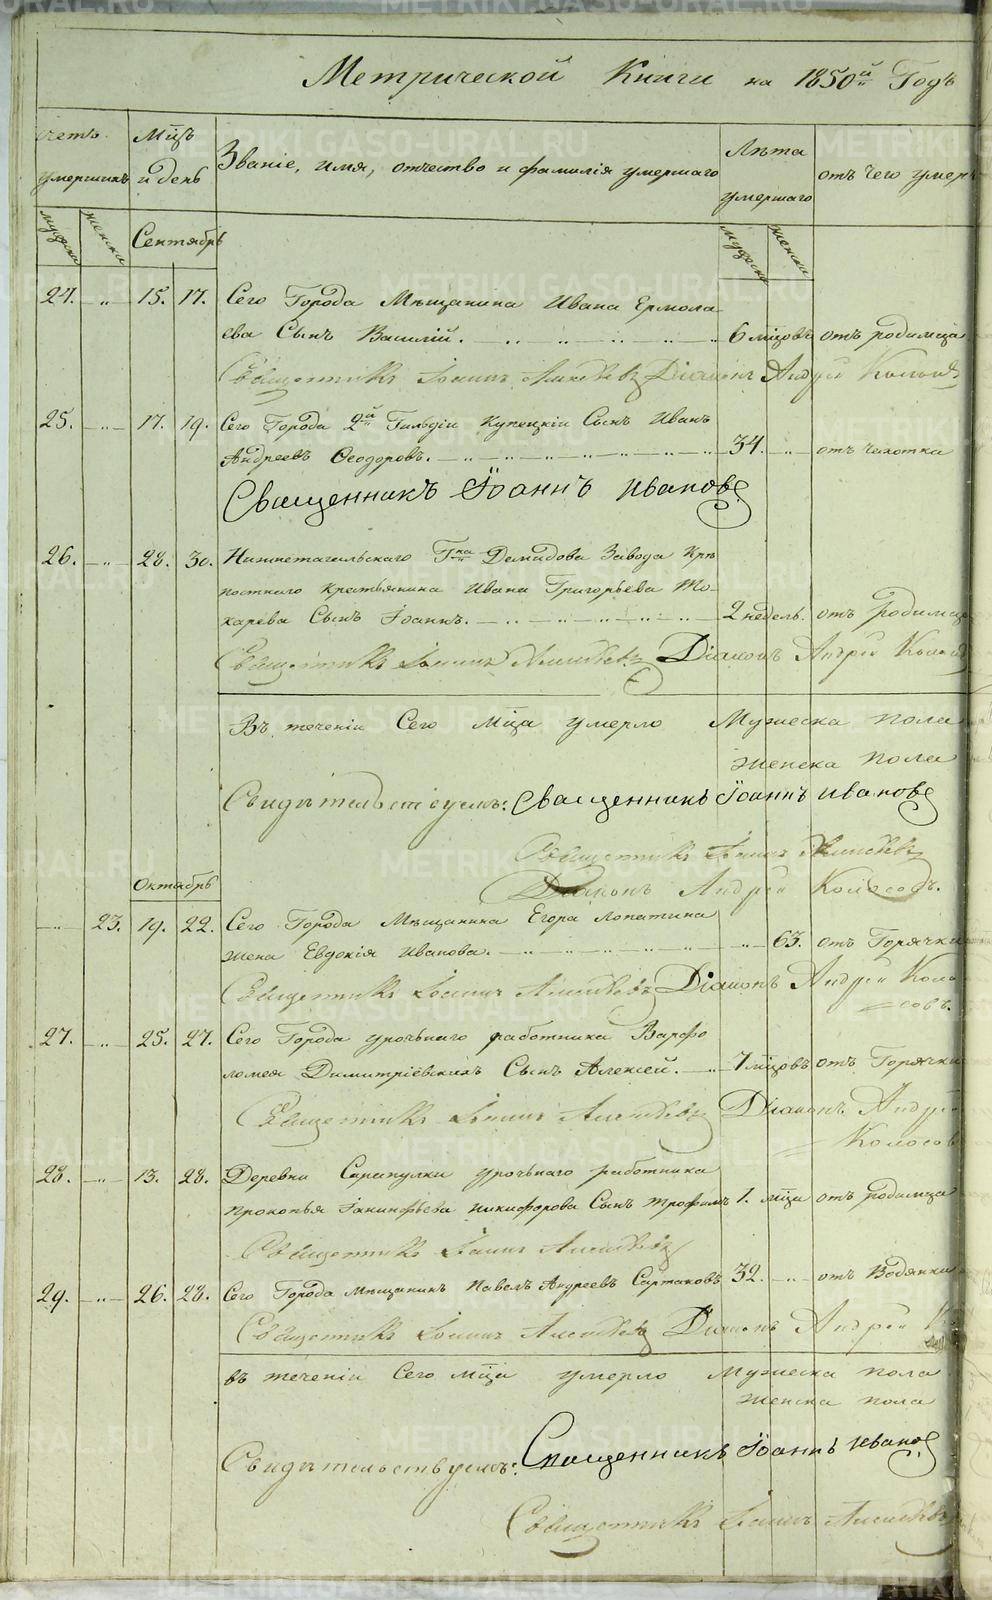 Метрической Книги на 1850й Годъ
счетъ умершихъ
Мц̃ъ и день
Званіе, имя, отчество и фамилія умершаго
Лѣта умершаго
отъ чего умеръ
мужеска
женска
Сентябрь
мужеска
женска
24. " 15. 17. Сего Города Мѣщанина Ивана Ермола
ева Сынъ Василій. 6 мцовъ отъ родимца
Священникъ Іоаннъ Діаконъ Андрей Колосовъ
25. " 17. 19. Сего Города 2й Гильдіи Купецкій Сынъ Иванъ
Андреевъ Ѳеодоровъ. 34. " отъ чахотки
Священникъ Іоаннъ Ивановъ
26. " 28. 30. Нижнетагильскаго Гна Демидова Завода Крѣ
постнаго крестьянина Ивана Григорьева То-
карева Сынъ Іоаннъ. 2 недель. отъ родимца
Священникъ Іоаннъ Діаконъ Андрей Колосовъ
Въ теченіи Сего мца умерло Мужеска пола
женска пола
Свидѣтельствуемъ: Священникъ Іоаннъ Ивановъ
Священникъ Іоаннъ
Діаконъ Андрей Колосовъ.
Октябрь
" 23. 19. 22. Сего Города Мѣщанина Егора Лопатина
жена Евдокія Иванова. " 63. отъ Горячки
Священникъ Іоаннъ Діаконъ Андрей Коло
совъ.
27. " 25. 27. Сего Города урочнаго работника Варфо
ломея Димитріевскихъ Сынъ Алексей. 7 мцовъ отъ Горячки
Священникъ Іоаннъ Діаконъ Андрей
Колосовъ
28. " 13. 28. Деревни Сарапулки урочнаго работника
Прокопья Никифорова Сынъ Трофимъ 1. мца отъ родимца
Священникъ Іоаннъ
29. " 26. 28. Сего Города Мѣщанинъ Павелъ Андреевъ Сартаковъ 32. " отъ Водянки
Священникъ Іоаннъ Діаконъ Андрей
въ теченіи Сего мца умерло Мужеска пола
женска пола
Свидѣтельствуемъ: Священникъ Іоаннъ Ивановъ
Священникъ Іоаннъ
METRIKI.GASO-URAL.RU